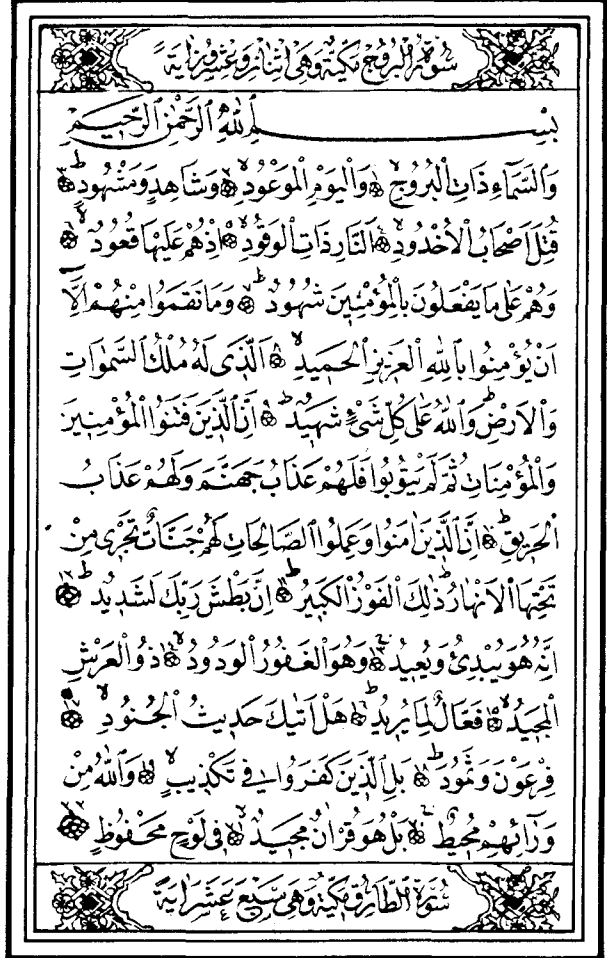 سُورَةُ الْبُرُوجِ مَكِّيَّةٌ وَهِيَ اثْنَانِ وَعِشْرُونَ اٰيَةً
بِسْمِ اللّٰهِ الرَّحْمٰنِ الرَّحِيمِ
وَالسَّمَٓاءِ ذَاتِ الْبُرُوجِۙ ۝ وَالْيَوْمِ الْمَوْعُودِۙ ۝ وَشَاهِدٍ وَمَشْهُودٍۜ ۝
قُتِلَ اَصْحَابُ الْاُخْدُودِۙ ۝ اَلنَّارِ ذَاتِ الْوَقُودِۙ ۝ اِذْ هُمْ عَلَيْهَا قُعُودٌۙ ۝
وَهُمْ عَلٰى مَا يَفْعَلُونَ بِالْمُؤْمِنِينَ شُهُودٌۜ ۝ وَمَا نَقَمُوا مِنْهُمْ اِلَّٓا
اَنْ يُؤْمِنُوا بِاللّٰهِ الْعَزِيزِ الْحَمِيدِۙ ۝ اَلَّذِي لَهُ مُلْكُ السَّمٰوَاتِ
وَالْاَرْضِۜ وَاللّٰهُ عَلٰى كُلِّ شَيْءٍ شَهِيدٌۜ ۝ اِنَّ الَّذِينَ فَتَنُوا الْمُؤْمِنِينَ
وَالْمُؤْمِنَاتِ ثُمَّ لَمْ يَتُوبُوا فَلَهُمْ عَذَابُ جَهَنَّمَ وَلَهُمْ عَذَابُ
الْحَرِيقِۜ ۝ اِنَّ الَّذِينَ اٰمَنُوا وَعَمِلُوا الصَّالِحَاتِ لَهُمْ جَنَّاتٌ تَجْرِي مِنْ
تَحْتِهَا الْاَنْهَارُۜ ذٰلِكَ الْفَوْزُ الْكَبِيرُۜ ۝ اِنَّ بَطْشَ رَبِّكَ لَشَدِيدٌۜ ۝
اِنَّهُ هُوَ يُبْدِئُ وَيُعِيدُۚ ۝ وَهُوَ الْغَفُورُ الْوَدُودُۙ ۝ ذُو الْعَرْشِ
الْمَجِيدُۙ ۝ فَعَّالٌ لِمَا يُرِيدُۜ ۝ هَلْ اَتٰيكَ حَدِيثُ الْجُنُودِۙ ۝
فِرْعَوْنَ وَثَمُودَۜ ۝ بَلِ الَّذِينَ كَفَرُوا فِي تَكْذِيبٍۙ ۝ وَاللّٰهُ مِنْ
وَرَٓائِهِمْ مُحِيطٌۚ ۝ بَلْ هُوَ قُرْاٰنٌ مَجِيدٌۙ ۝ فِي لَوْحٍ مَحْفُوظٍ ۝
سُورَةُ الطَّارِقِ مَكِّيَّةٌ وَهِيَ سَبْعَ عَشْرَةَ اٰيَةً